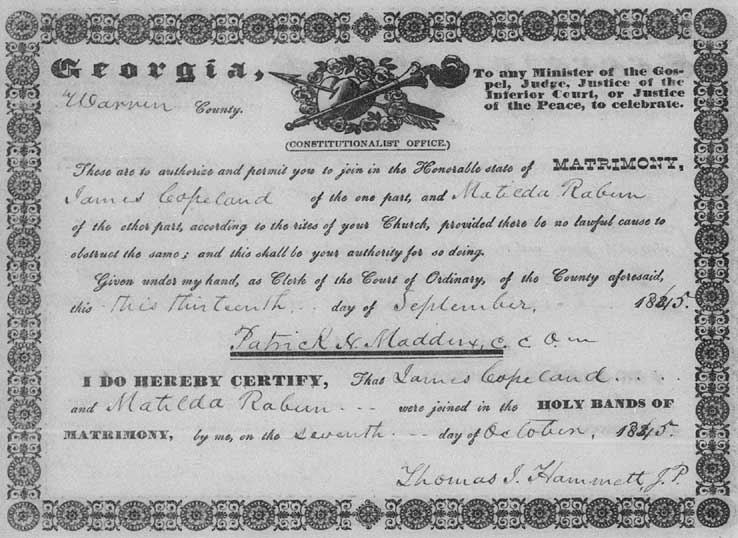 Georgia,
Warren County.
To any Minister of the Gos-
pel, Judge, Justice of the
Inferior Court, or Justice
of the Peace, to celebrate.
(CONSTITUTIONALIST OFFICE.)
These are to authorize and permit you to join in the Honorable state of MATRIMONY,
James Copeland of the one part, and Matilda Rabun
of the other part, according to the rites of your Church, provided there be no lawful cause to
obstruct the same; and this shall be your authority for so doing.
Given under my hand, as Clerk of the Court of Ordinary, of the County aforesaid,
this this thirteenth day of September, 1845.
Patrick N. Maddux, c. c. O.
I DO HEREBY CERTIFY, That James Copeland
and Matilda Rabun were joined in the HOLY BANDS OF
MATRIMONY, by me, on the seventh day of October, 1845.
Thomas J. Hammett, J.P.